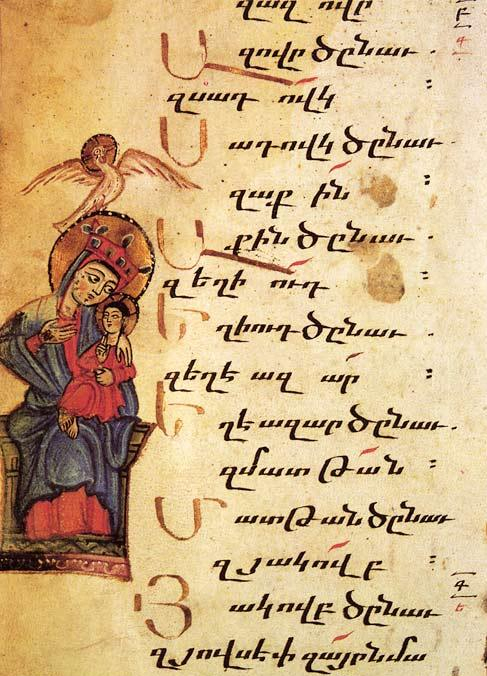 զազովր
Ազովր ծընաւ.
զսադովկ :
Սադովկ ծընաւ.
զաքին :
Աքին ծընաւ.
զեղիուդ :
Եղիուդ ծընաւ.
զեղեազար :
Եղեազար ծընաւ.
զմատթան :
Մատթան ծընաւ
զյակովբ :
Յակովբ ծընաւ
զյովսեփ զայրընմա